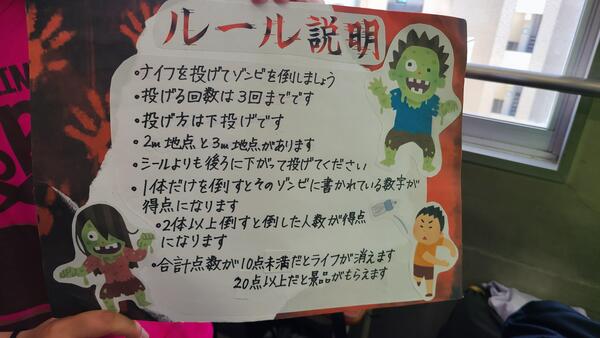 ルール説明
・ナイフを投げてゾンビを倒しましょう
・投げる回数は3回までです
・投げ方は下投げです
・2m地点と3m地点があります
・シールよりも後ろに下がって投げてください
・1体だけを倒すとそのゾンビに書かれている数字が
得点になります
・2体以上倒すと倒した人数が得点
になります
・合計点数が10点未満だとライフが消えます
20点以上だと景品がもらえます